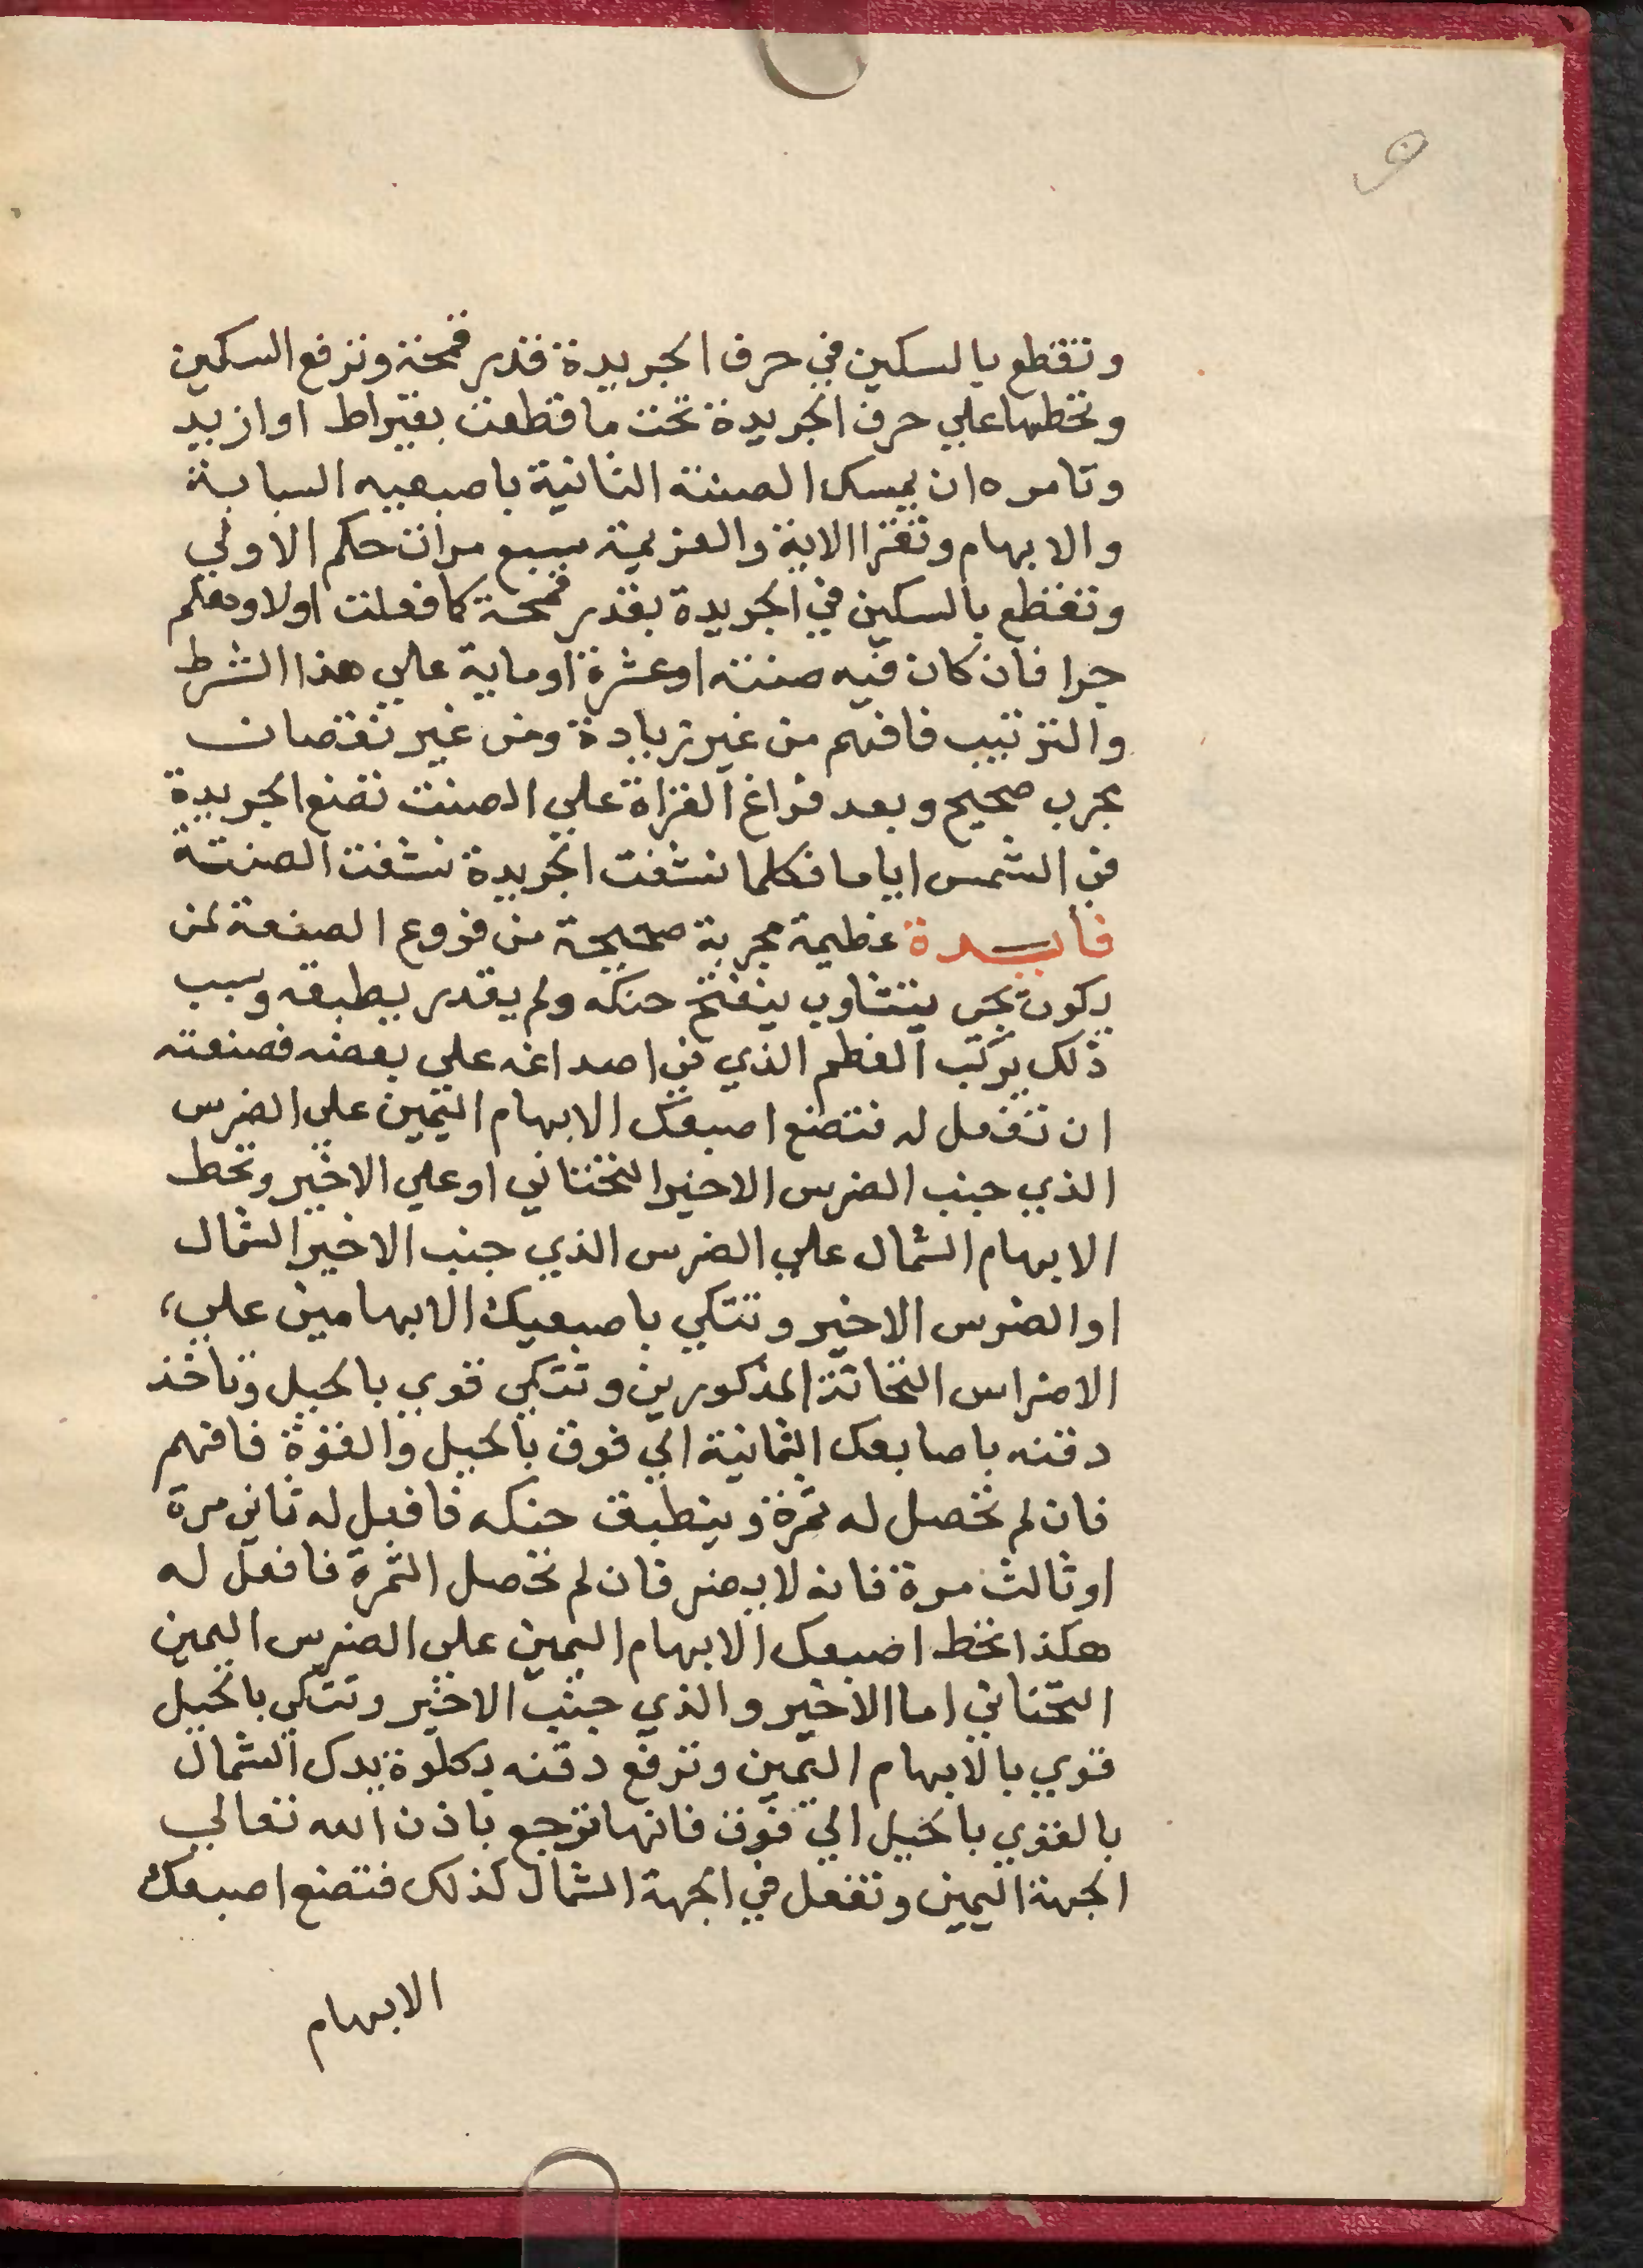 وتقطع بالسكين في حرف الجريدة قدر قمحة وترفع السكين
وتحطها علي حرف الجريدة تحت ما قطعت بقيراط او ازيد
وتامره ان يمسك الصنتة الثانية باصبعيه السبابة
والابهام وتقرا الاية والعزيمة سبع مرات حكم الاولي
وتقطع بالسكين في الجريدة بقدر قمحة كما فعلت اولا وهلم
جرا فان كان فيه صنتة او عشرة او ماية علي هذا الشرط
والترتيب فافهم من غير زيادة ومن غير نقصان
مجرب صحيح وبعد فراغ القراة علي الصنت تضع الجريدة
في الشمس اياما فكلما نشفت الجريدة نشفت الصنتة
فايدة عظيمة مجربة صحيحة من فروع الصنعة لمن
يكون يجي يتتاوب ينفتح حنكه ولم يقدر يطبقه وسبب
ذلك يركب العظم الذي في اصداغه علي بعضه فصنعته
ان تفعل له فتضع اصبعك الابهام اليمين علي الضرس
الذي جنب الضرس الاخير التحتاني او علي الاخير وتحط
الابهام الشمال علي الضرس الذي جنب الاخير الشمال
او الضرس الاخير وتتكي باصبعيك الابهامين علي
الاضراس التحاتة المذكورين وتتكي قوي بالحيل وتاخذ
دقنه باصابعك الثمانية الي فوق بالحيل والقوة فافهم
فان لم تحصل له ثمرة وينطبق حنكه فافعل له ثاني مرة
او ثالث مرة فانه لا يضر فان لم تحصل الثمرة فافعل له
هكذا تحط اصبعك الابهام اليمين علي الضرس اليمين
التحتاني اما الاخير والذي جنب الاخير وتتكي بالحيل
قوي بالابهام اليمين وترفع دقنه بكلوة يدك الشمال
بالقوي بالحيل الي فوق فانها ترجع باذن الله تعالي
الجهة اليمين وتفعل في الجهة الشمال كذلك فتضع اصبعك
الابهام